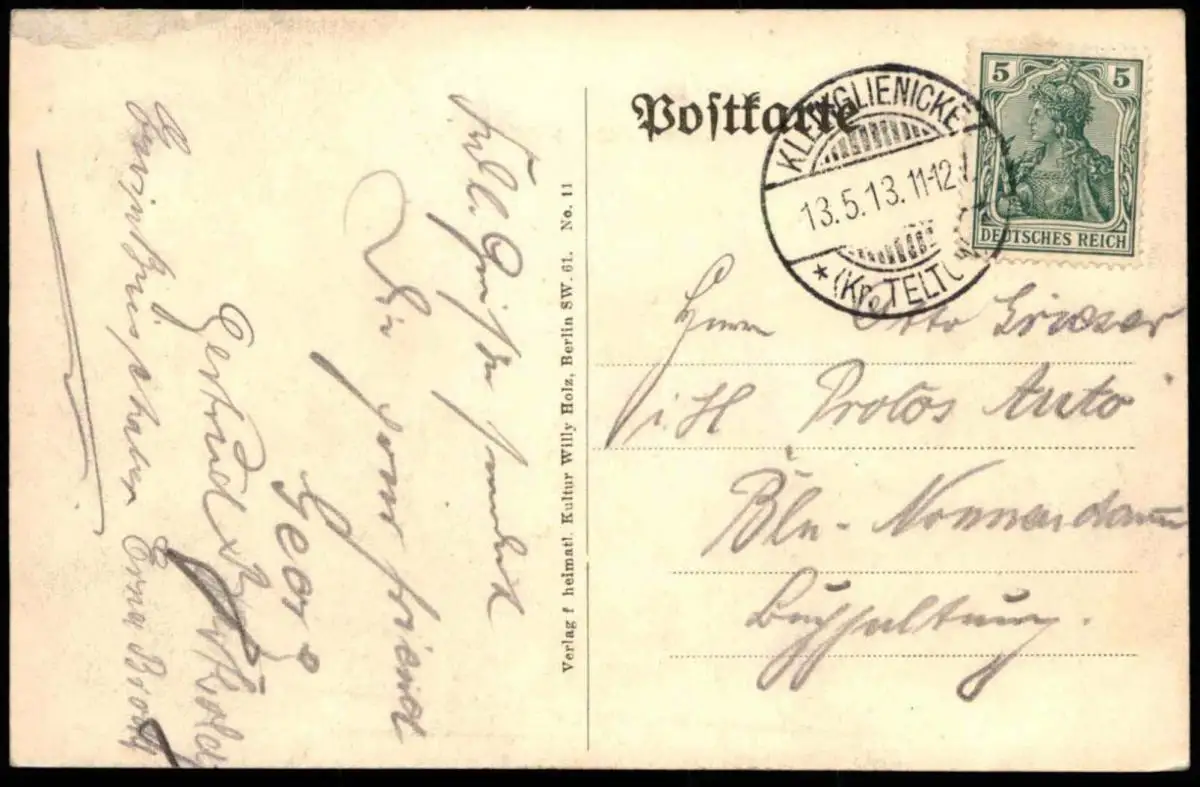 Postkarte
KLEINGLIENICKE
13.5.13. 11-12
* (Kr. TELTOW)
5 5
DEUTSCHES REICH
Herrn Otto Grieser
i/H Protos Auto
Bln- Nonnendamm
Buchhaltung.
Verlag f heimatl. Kultur Willy Holz, Berlin SW. 61. No. 11
Frdl. Grüße sendet
Dir Freund
Georg
Gertrud
Erna